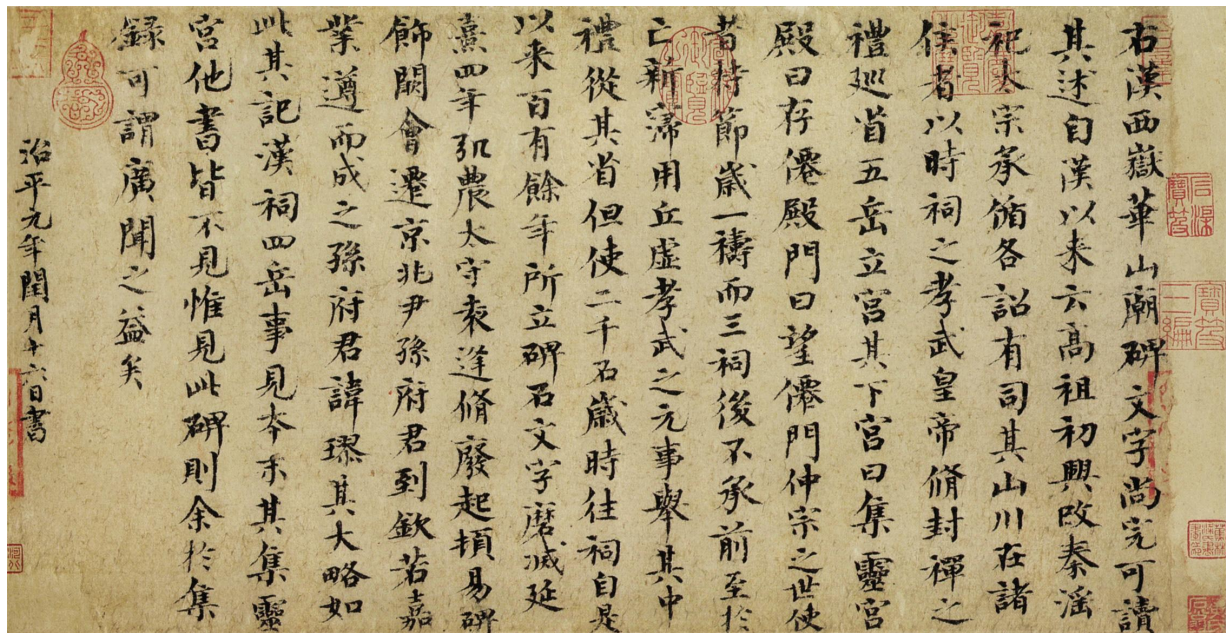 右漢西嶽華山廟碑文字尚完可讀
其述自漢以来云高祖初興改秦滛
祀太宗承循各詔有司其山川在諸
侯者以時祠之孝武皇帝脩封禪之
禮巡省五岳立宮其下宮曰集靈宮
殿曰存僊殿門曰望僊門仲宗之世使
者持節歲一禱而三祠後不承前至於
亡新寖用丘虚孝武之元事舉其中
禮從其省但使二千石歲時往祠自是
以来百有餘年所立碑石文字磨滅延
熹四年弘農太守袁逢脩廢起頓易碑
飾闕會遷京兆尹孫府君到欽若嘉
業遵而成之孫府君諱璆其大略如
此其記漢祠四岳事見本末其集靈
宮他書皆不見惟見此碑則余於集
録可謂廣聞之益矣
治平元年閏月十六日書